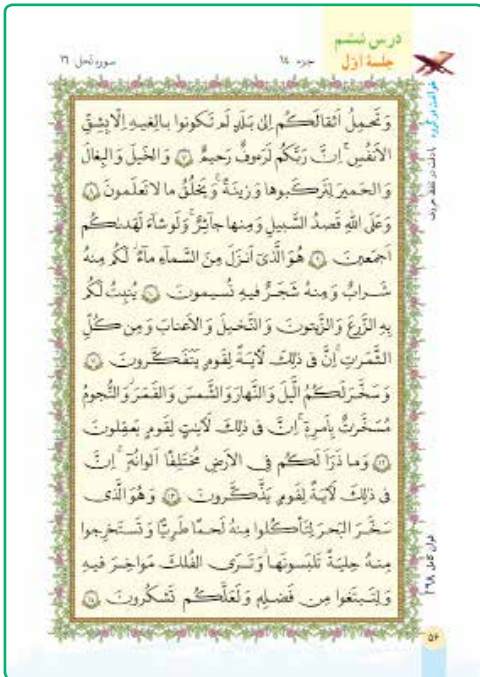 درس ششم
جلسهٔ اوّل
جزء ١٤
سوره نحل ١٦
قرائت در گروه
با دقت در تلفظ حروف
وَ تَحمِلُ اَثقالَكُم اِلىٰ بَلَدٍ لَم تَكونوا بالِغيهِ اِلّا بِشِقِّ
الاَنفُسِ ۚ اِنَّ رَبَّكُم لَرَءوفٌ رَحيمٌ ٧ وَ الخَيلَ وَ البِغالَ
وَ الحَميرَ لِتَركَبوها وَ زينَةً ۚ وَ يَخلُقُ ما لا تَعلَمونَ ٨
وَ عَلَى اللهِ قَصدُ السَّبيلِ وَ مِنها جآئِرٌ ۚ وَ لَو شآءَ لَهَدىٰكُم
اَجمَعينَ ٩ هُوَ الَّذى اَنزَلَ مِنَ السَّمآءِ مآءً ۖ لَكُم مِنهُ
شَرابٌ وَ مِنهُ شَجَرٌ فيهِ تُسيمونَ ١٠ يُنبِتُ لَكُم
بِهِ الزَّرعَ وَ الزَّيتونَ وَ النَّخيلَ وَ الاَعنابَ وَ مِن كُلِّ
الثَّمَرٰتِ ۗ اِنَّ فى ذٰلِكَ لَاٰيَةً لِقَومٍ يَتَفَكَّرونَ ١١
وَ سَخَّرَ لَكُمُ الَّيلَ وَ النَّهارَ وَ الشَّمسَ وَ القَمَرَ ۖ وَ النُّجومُ
مُسَخَّرٰتٌ بِاَمرِهٖ ۗ اِنَّ فى ذٰلِكَ لَاٰيٰتٍ لِقَومٍ يَعقِلونَ
١٢ وَ ما ذَرَاَ لَكُم فِى الاَرضِ مُختَلِفًا اَلوانُهٗ ۗ اِنَّ
فى ذٰلِكَ لَاٰيَةً لِقَومٍ يَذَّكَّرونَ ١٣ وَ هُوَ الَّذى
سَخَّرَ البَحرَ لِتَأكُلوا مِنهُ لَحمًا طَريًّا وَ تَستَخرِجوا
مِنهُ حِليَةً تَلبَسونَها ۚ وَ تَرَى الفُلكَ مَواخِرَ فيهِ
وَ لِتَبتَغوا مِن فَضلِهٖ وَ لَعَلَّكُم تَشكُرونَ ١٤
قرآن کامل ٢٦٨
٥٦